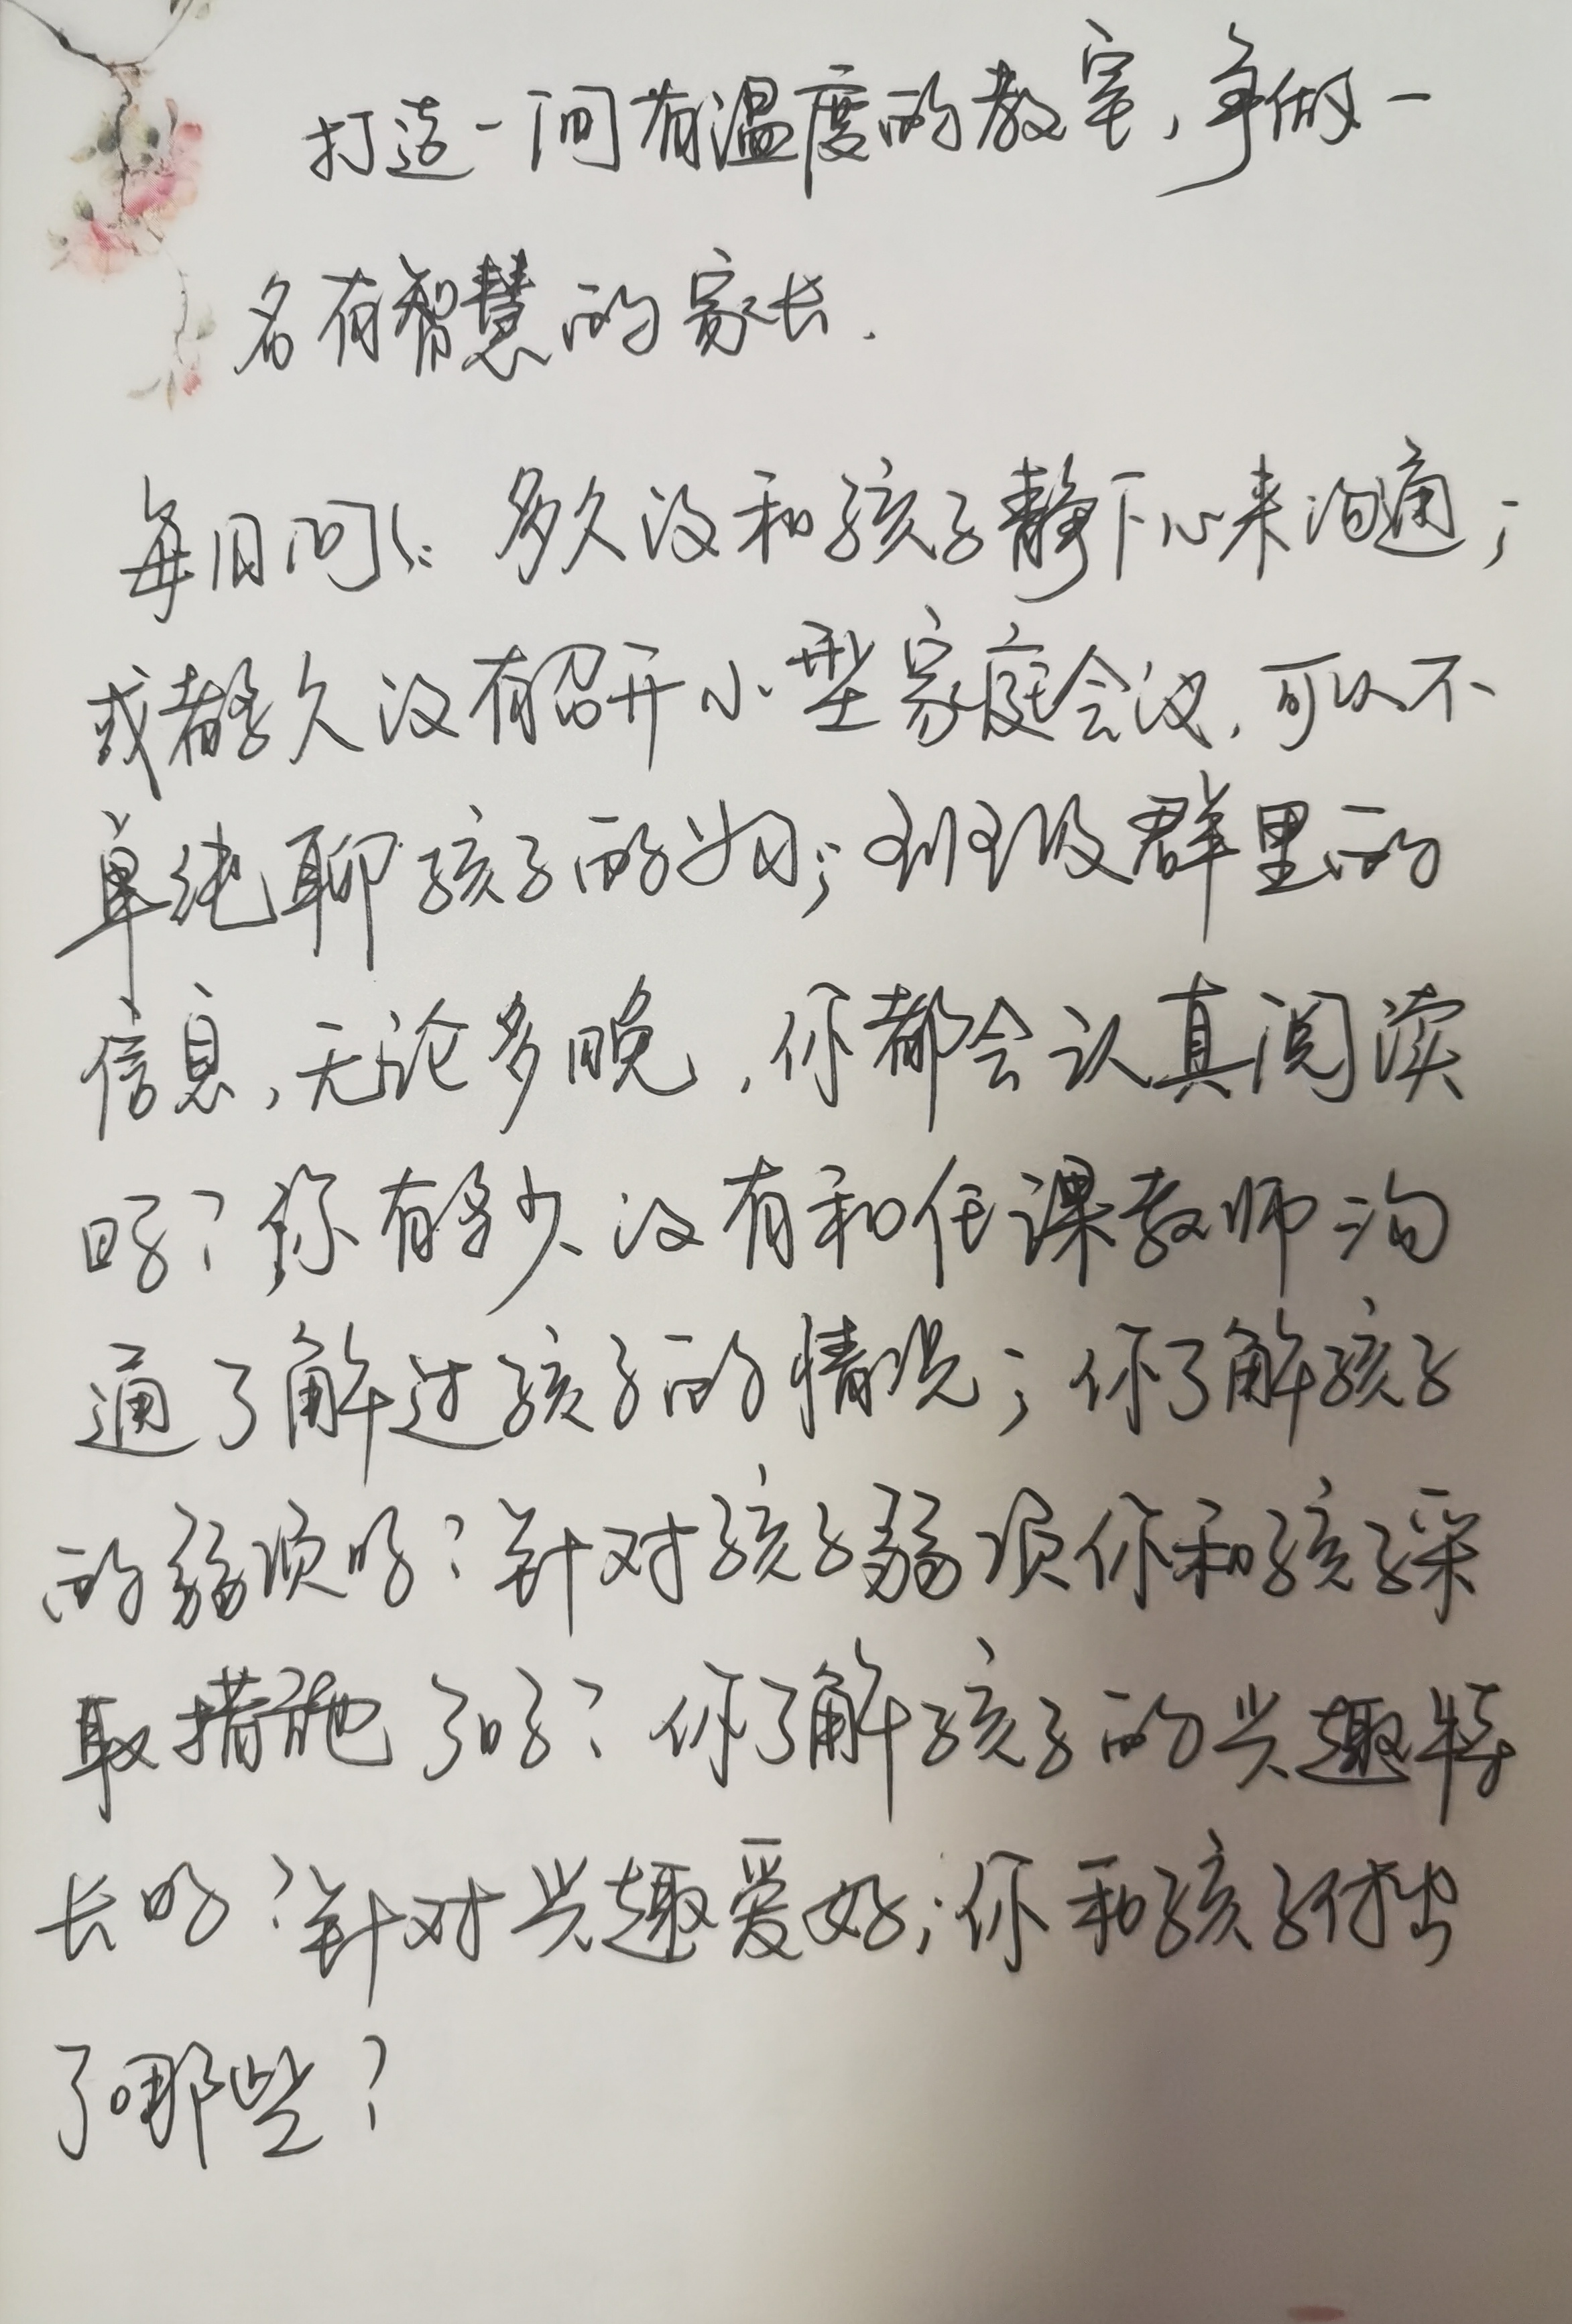 打造一间有温度的教室，争做一
名有智慧的家长.
每日问: 多久没和孩子静下心来沟通；
或者多久没有召开小型家庭会议，可以不
单纯聊孩子的；班级群里的
信息，无论多晚，你都会认真阅读
吗？你有多少没有和任课教师沟
通了解过孩子的情况；你了解孩子
的弱项吗？针对孩子弱项你和孩子采
取措施了吗？你了解孩子的兴趣特
长吗？针对兴趣爱好；你和孩子付出
了哪些？